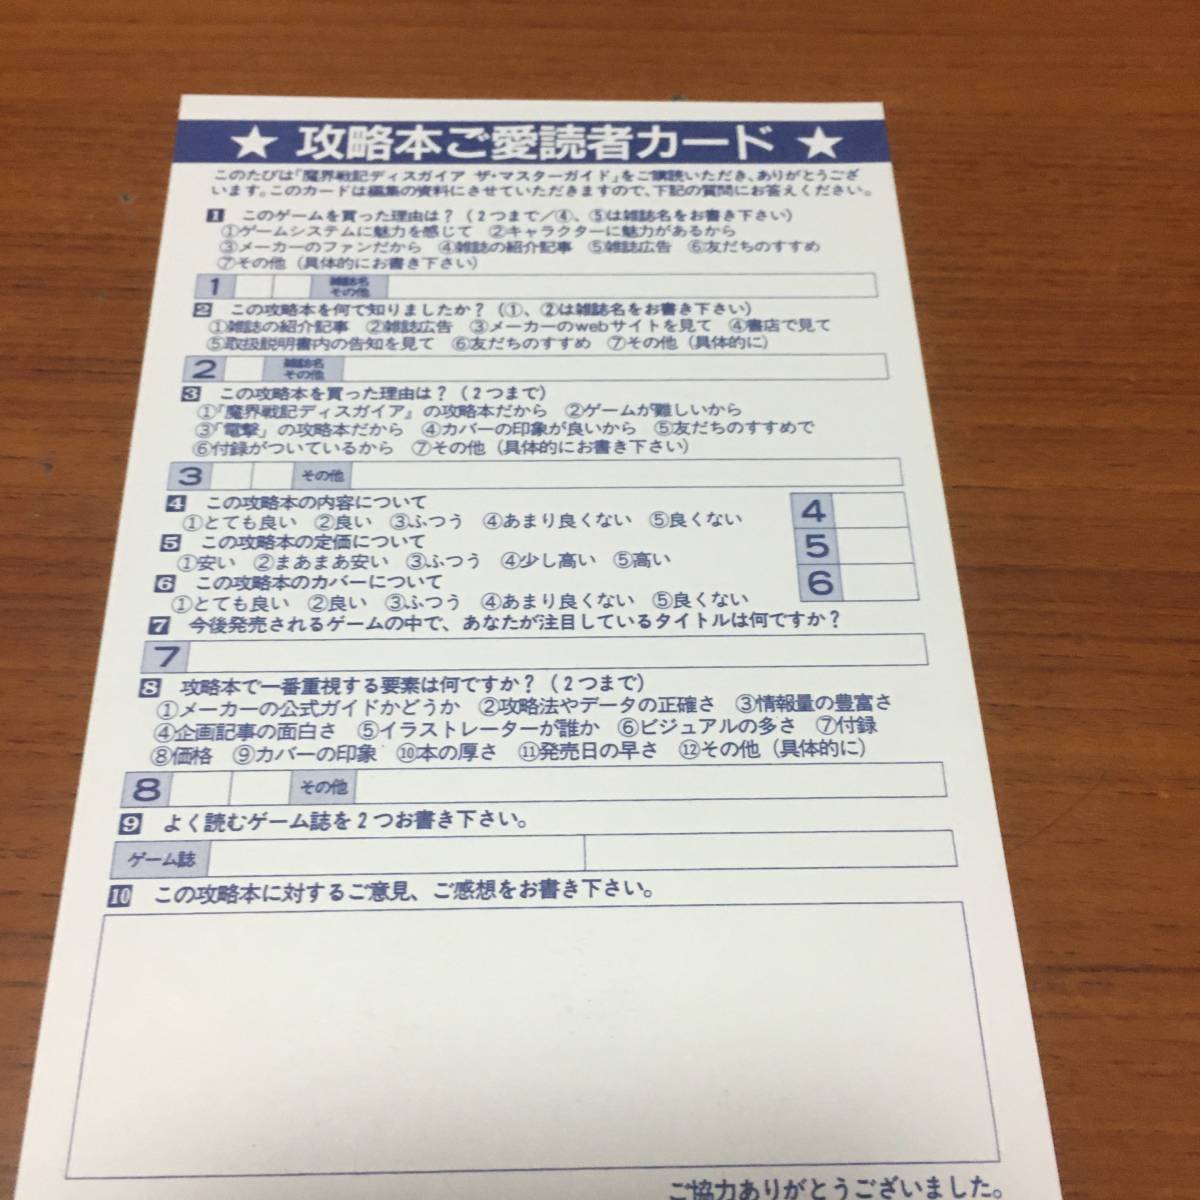 ★ 攻略本ご愛読者カード ★
このたびは「魔界戦記ディスガイア ザ・マスターガイド」をご購読いただき、ありがとうござ
います。このカードは編集の資料にさせていただきますので、下記の質問にお答えください。
1 このゲームを買った理由は？（2つまで／④、⑤は雑誌名をお書き下さい）
①ゲームシステムに魅力を感じて ②キャラクターに魅力があるから
③メーカーのファンだから ④雑誌の紹介記事 ⑤雑誌広告 ⑥友だちのすすめ
⑦その他（具体的にお書き下さい）
1 雑誌名 その他
2 この攻略本を何で知りましたか？（①、②は雑誌名をお書き下さい）
①雑誌の紹介記事 ②雑誌広告 ③メーカーのwebサイトを見て ④書店で見て
⑤取扱説明書内の告知を見て ⑥友だちのすすめ ⑦その他（具体的に）
2 雑誌名 その他
3 この攻略本を買った理由は？（2つまで）
①『魔界戦記ディスガイア』の攻略本だから ②ゲームが難しいから
③「電撃」の攻略本だから ④カバーの印象が良いから ⑤友だちのすすめで
⑥付録がついているから ⑦その他（具体的にお書き下さい）
3 その他
4 この攻略本の内容について
①とても良い ②良い ③ふつう ④あまり良くない ⑤良くない
4
5 この攻略本の定価について
①安い ②まあまあ安い ③ふつう ④少し高い ⑤高い
5
6 この攻略本のカバーについて
①とても良い ②良い ③ふつう ④あまり良くない ⑤良くない
6
7 今後発売されるゲームの中で、あなたが注目しているタイトルは何ですか？
7
8 攻略本で一番重視する要素は何ですか？（2つまで）
①メーカーの公式ガイドかどうか ②攻略法やデータの正確さ ③情報量の豊富さ
④企画記事の面白さ ⑤イラストレーターが誰か ⑥ビジュアルの多さ ⑦付録
⑧価格 ⑨カバーの印象 ⑩本の厚さ ⑪発売日の早さ ⑫その他（具体的に）
8 その他
9 よく読むゲーム誌を2つお書き下さい。
ゲーム誌
10 この攻略本に対するご意見、ご感想をお書き下さい。
ご協力ありがとうございました。